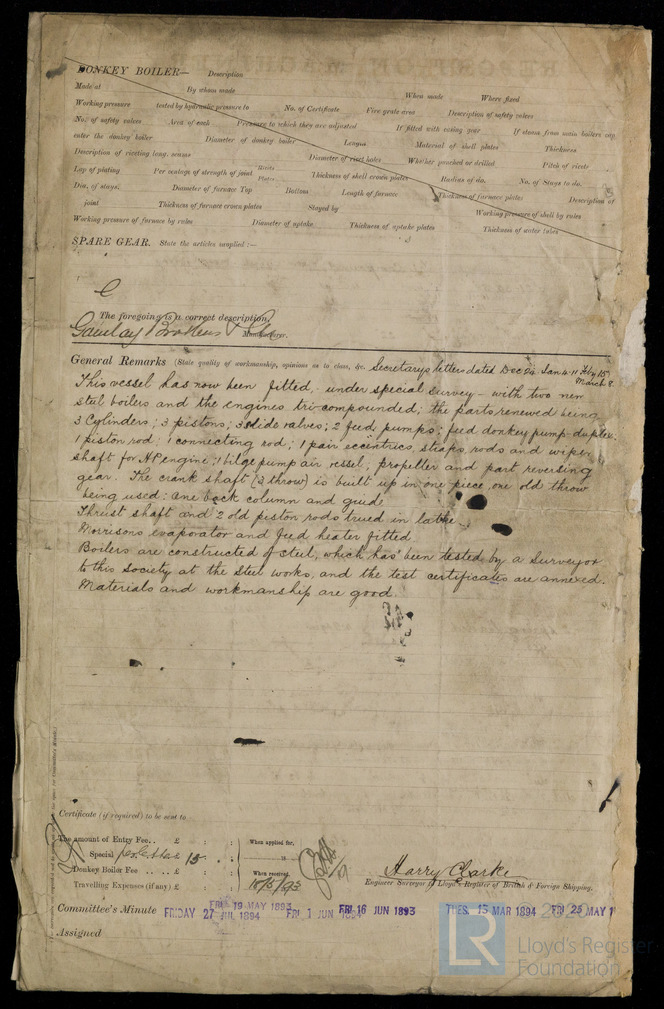 DONKEY BOILER— Description
Made at By whom made When made Where fixed
Working pressure tested by hydraulic pressure to No. of Certificate Fire grate area Description of safety valves
No. of safety valves Area of each Pressure to which they are adjusted If fitted with easing gear If steam from main boilers can
enter the donkey boiler Diameter of donkey boiler Length Material of shell plates Thickness
Description of riveting long. seams Diameter of rivet holes Whether punched or drilled Pitch of rivets
Lap of plating Per centage of strength of joint Rivets Plates Thickness of shell crown plates Radius of do. No. of Stays to do.
Dia. of stays. Diameter of furnace Top Bottom Length of furnace Thickness of furnace plates Description of
joint Thickness of furnace crown plates Stayed by Working pressure of shell by rules
Working pressure of furnace by rules Diameter of uptake Thickness of uptake plates Thickness of water tubes
SPARE GEAR. State the articles supplied :—
The foregoing is a correct description,
Gourlay Brothers & Co Manufacturer.
General Remarks (State quality of workmanship, opinions as to class, &c. Secretarys letters dated Dec 20 Jan 4·11 Feby 15
March 8
This vessel has now been fitted – under special survey – with two new
steel boilers and the engines tri-compounded; the parts renewed being
3 Cylinders; 3 pistons; 3 slide valves; 2 feed pumps; feed donkey pump-duplex;
1 piston rod; 1 connecting rod; 1 pair eccentrics, straps, rods and wiper
shaft for HP engine; 1 bilge pump air vessel; propeller and part reversing
gear. The crank shaft (3 throw) is built up in one piece, one old throw
being used: one back column and guide
Thrust shaft and 2 old piston rods trued in lathe
Morrisons evaporator and feed heater fitted
Boilers are constructed of steel, which has been tested by a Surveyor
to this Society at the steel works, and the test certificates are annexed.
Materials and workmanship are good.
Certificate (if required) to be sent to
The amount of Entry Fee.. £ : : When applied for,
Special £ 15 : : 18
Donkey Boiler Fee .. .. £ : : When received,
Travelling Expenses (if any) £ : : 15/5/93
Harry Clarke
Engineer Surveyor to Lloyd's Register of British & Foreign Shipping.
Committee's Minute
FRI 19 MAY 1893
FRIDAY 27 JUL 1894 FRI 1 JUN 1894 FRI 16 JUN 1893 TUES 13 MAR 1894 FRI 25 MAY 1
Assigned
LR
Lloyd's Register
Foundation